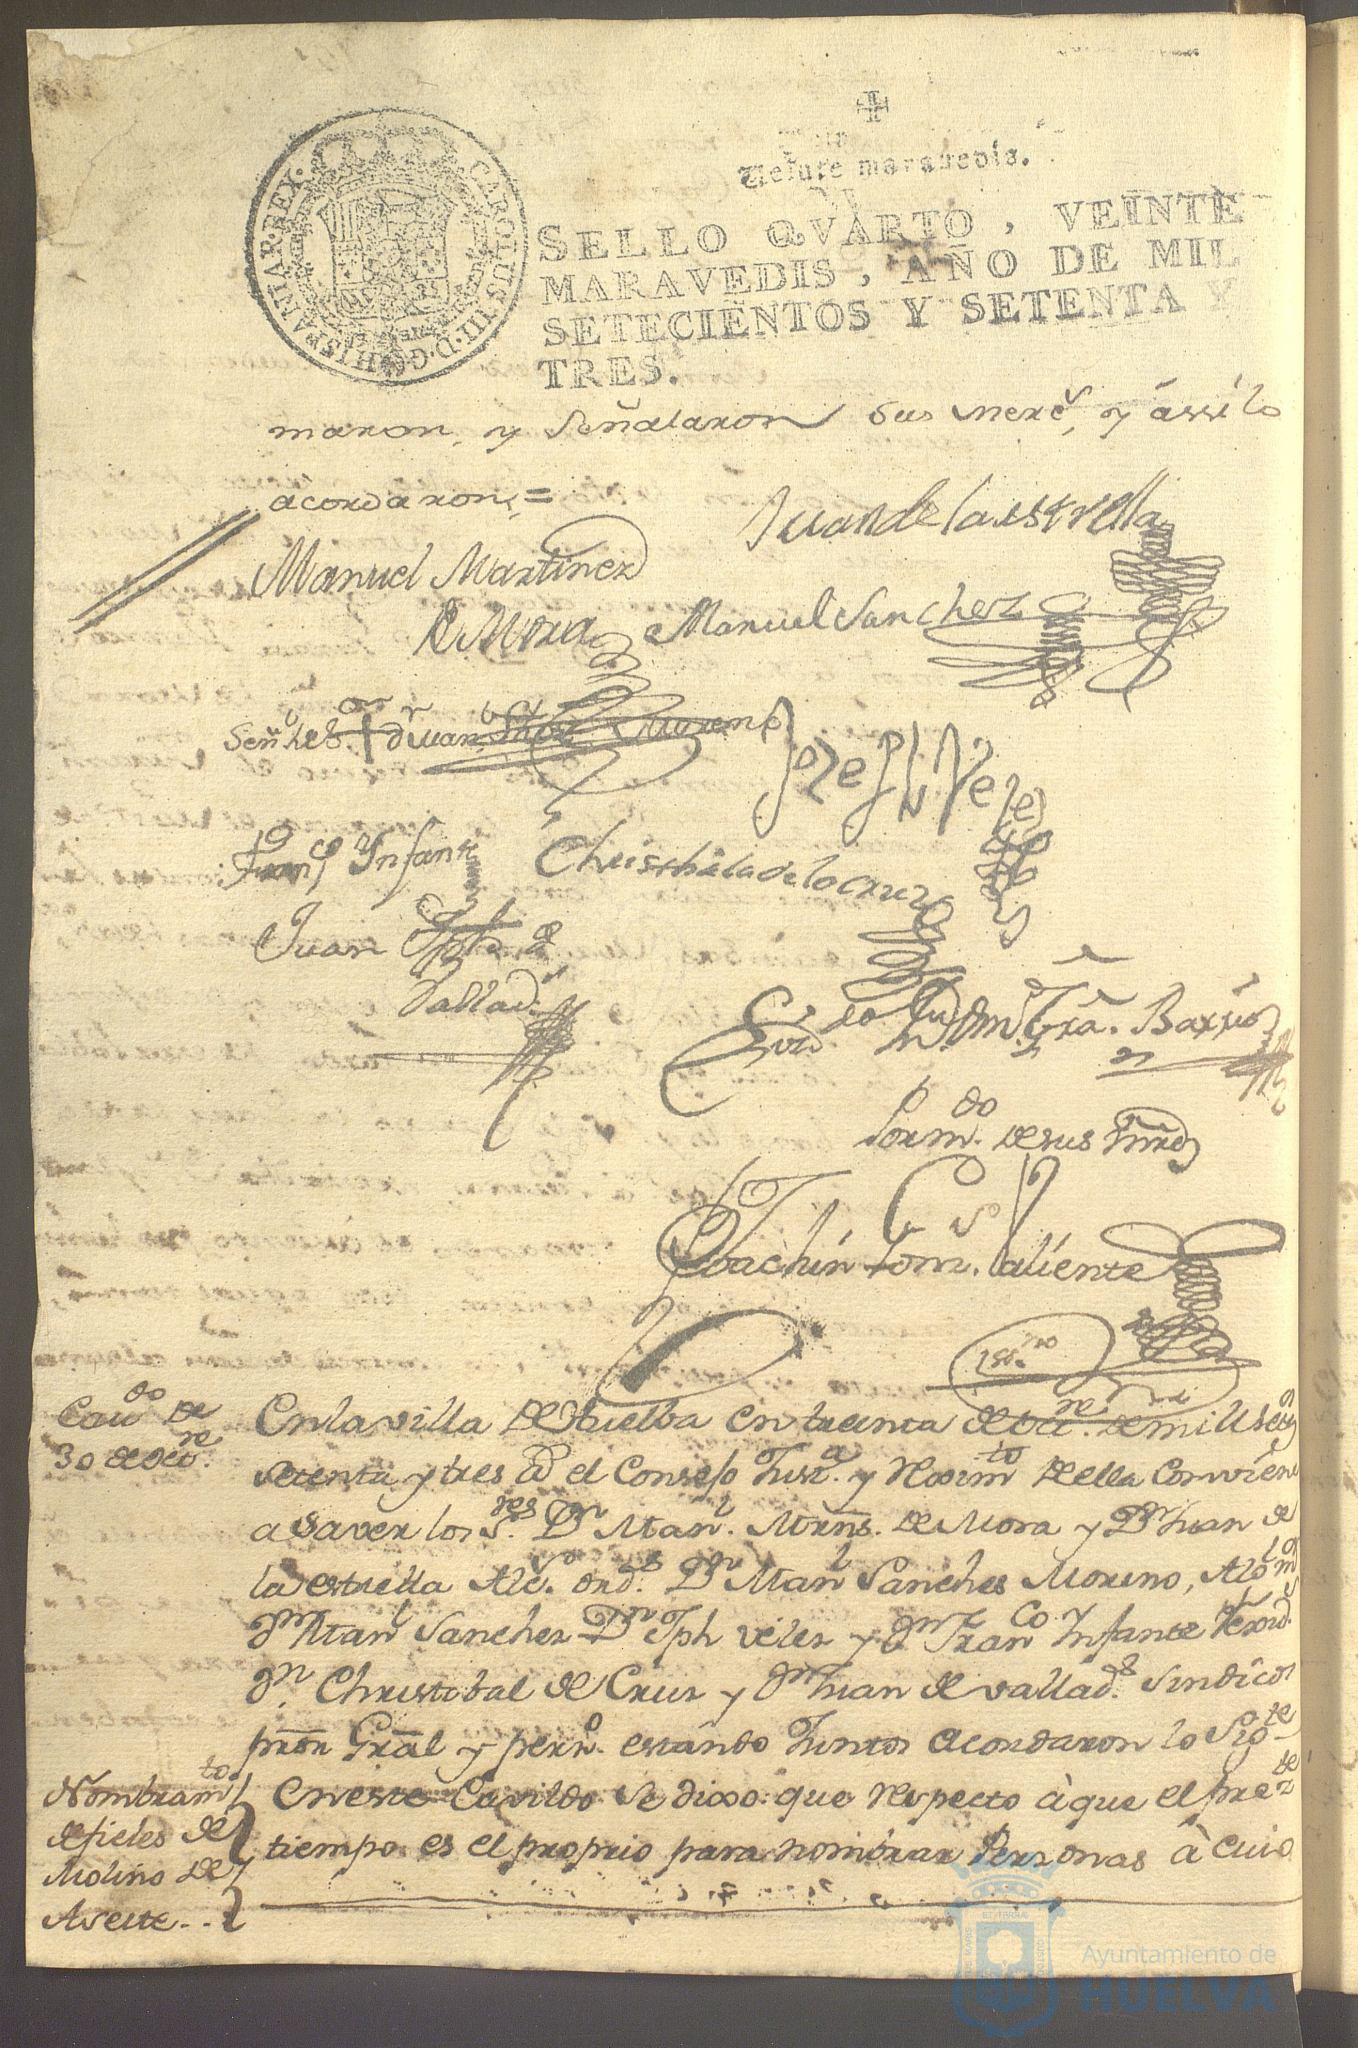 Veinte maravedis.
SELLO QVARTO, VEINTE
MARAVEDIS, AÑO DE MIL
SETECIENTOS Y SETENTA Y
TRES.
CAROLUS III D.G. HISPANIAR. REX.
maron, y señalaron sus merc.s, y assi lo
acordaron, =
Juan de la estrella
Manuel Martinez
de Mora
Manuel Sanchez
Señ
Juan Moreno
Jozeph Velez
Fran.co Ynfante
Christobal de la Cruz
Juan Jph de
Vallad.
Barrios
Por m.do de sus
Joachin Valiente
Ess.no
Cav.do de
30 de Oct.re
En la villa de Huelba en treinta de oct.re de mill set.s
setenta y tres el Consejo Just.a y Reximto de ella Conviene
a saver los S.res D.n Man.l Mrns. de Mora y D.n Juan de
la estrella Alc.s ord.s D.n Man.l Sanches Moreno,
D.n Man.l Sanchez D.n Jph veles y D.n Fran.co Infante
D.n Christobal de Cruz y D.n Juan de vallad. Sindicos
pror Gral y pern.o estando Juntos acordaron lo sig.te
Nombram.to
de fieles de
Molino de
Aseite..
En este Cavildo se dixo que respecto à que el pre
tiempo es el proprio para nombrar Personas à cuio
Ayuntamiento de
HUELVA